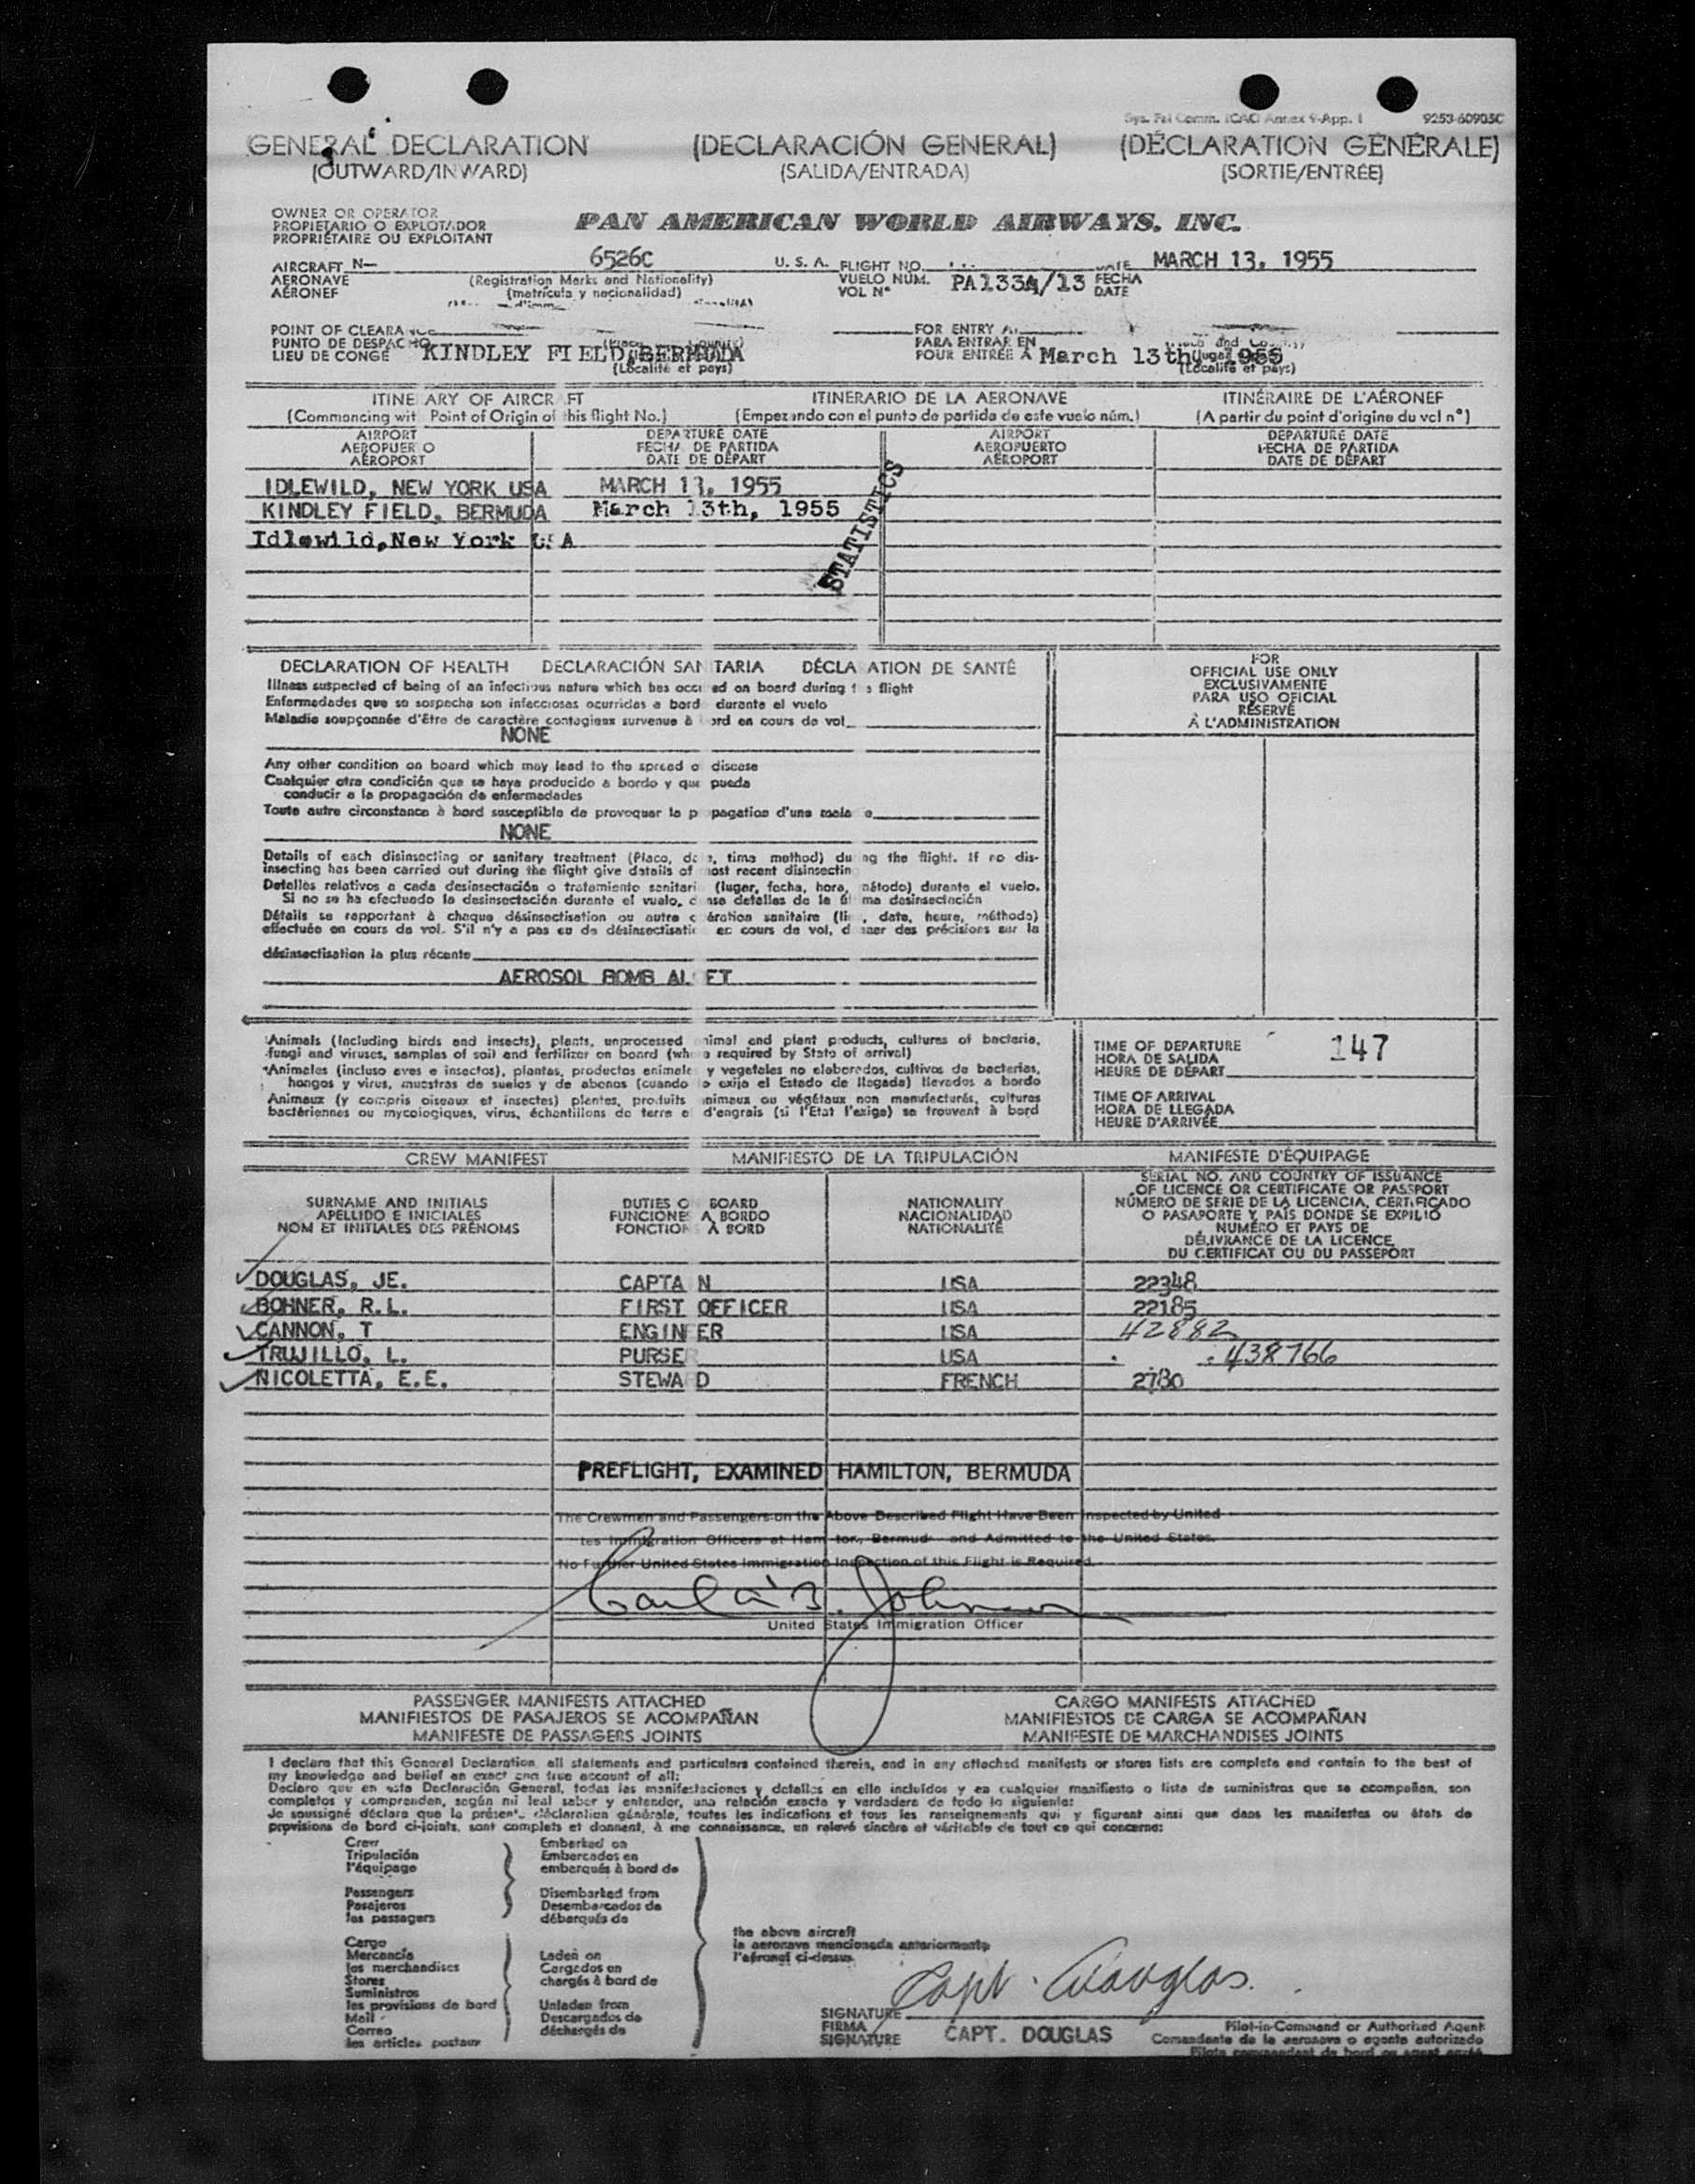 Sys. Fal Comm. ICAO Annex 9-App. 1 9253-60905C
GENERAL DECLARATION (DECLARACIÓN GENERAL) (DÉCLARATION GÉNÉRALE)
(OUTWARD/INWARD) (SALIDA/ENTRADA) (SORTIE/ENTRÉE)
OWNER OR OPERATOR
PROPIETARIO O EXPLOTADOR
PROPRIÉTAIRE OU EXPLOITANT
PAN AMERICAN WORLD AIRWAYS, INC.
AIRCRAFT N— 6526C U. S. A. FLIGHT NO. DATE MARCH 13, 1955
AERONAVE (Registration Marks and Nationality) VUELO NUM. PA133A/13 FECHA
AÉRONEF (matrícula y nacionalidad) VOL Nº DATE
POINT OF CLEARANCE FOR ENTRY AT
PUNTO DE DESPACHO PARA ENTRAR EN
LIEU DE CONGÉ KINDLEY FIELD, BERMUDA POUR ENTRÉE À March 13th, 1955
(Localité et pays) (Localité et pays)
ITINE ARY OF AIRCR AFT ITINERARIO DE LA AERONAVE ITINÉRAIRE DE L'AÉRONEF
(Commencing wit Point of Origin of this flight No.) (Empezando con el punto de partida de este vuelo núm.) (A partir du point d'origine du vol nº)
AIRPORT DEPARTURE DATE AIRPORT DEPARTURE DATE
AEROPUER O FECHA DE PARTIDA AEROPUERTO FECHA DE PARTIDA
AÉROPORT DATE DE DÉPART AÉROPORT DATE DE DÉPART
IDLEWILD, NEW YORK USA MARCH 13, 1955
KINDLEY FIELD, BERMUDA March 13th, 1955
Idlewild,New York USA
STATISTICS
DECLARATION OF HEALTH DECLARACIÓN SANITARIA DÉCLA ATION DE SANTÉ
Illness suspected of being of an infectious nature which has occurred on board during the flight
Enfermedades que se sospecha son infecciosas ocurridas a bordo durante el vuelo
Maladie soupçonnée d'être de caractère contagieux survenue à bord en cours de vol
NONE
Any other condition on board which may lead to the spread of disease
Cualquier otra condición que se haya producido a bordo y que pueda
conducir a la propagación de enfermedades
Toute autre circonstance à bord susceptible de provoquer la propagation d'une maladie
NONE
Details of each disinsecting or sanitary treatment (Place, date, time method) during the flight. If no dis-
insecting has been carried out during the flight give details of most recent disinsecting
Detalles relativos a cada desinsectación o tratamiento sanitario (lugar, fecha, hora, método) durante el vuelo.
Si no se ha efectuado la desinsectación durante el vuelo, dense detalles de la última desinsectación
Détails se rapportant à chaque désinsectisation ou autre opération sanitaire (lieu, date, heure, méthode)
effectuée en cours de vol. S'il n'y a pas eu de désinsectisation en cours de vol, donner des précisions sur la
désinsectisation la plus récente
AEROSOL BOMB ALOFT
FOR
OFFICIAL USE ONLY
EXCLUSIVAMENTE
PARA USO OFICIAL
RÉSERVÉ
À L'ADMINISTRATION
Animals (Including birds and insects), plants, unprocessed animal and plant products, cultures of bacteria,
fungi and viruses, samples of soil and fertilizer on board (where required by State of arrival)
Animales (incluso aves e insectos), plantas, productos animales y vegetales no elaborados, cultivos de bacterias,
hongos y virus, muestras de suelos y de abonos (cuando lo exija el Estado de llegada) llevados a bordo
Animaux (y compris oiseaux et insectes) plantes, produits animaux ou végétaux non manufacturés, cultures
bactériennes ou mycologiques, virus, échantillons de terre et d'engrais (si l'Etat l'exige) se trouvent à bord
TIME OF DEPARTURE 147
HORA DE SALIDA
HEURE DE DÉPART
TIME OF ARRIVAL
HORA DE LLEGADA
HEURE D'ARRIVÉE
CREW MANIFEST MANIFIESTO DE LA TRIPULACIÓN MANIFESTE D'ÉQUIPAGE
SURNAME AND INITIALS
APELLIDO E INICIALES
NOM ET INITIALES DES PRÉNOMS
DUTIES ON BOARD
FUNCIONES A BORDO
FONCTIONS À BORD
NATIONALITY
NACIONALIDAD
NATIONALITÉ
SERIAL NO. AND COUNTRY OF ISSUANCE
OF LICENCE OR CERTIFICATE OR PASSPORT
NÚMERO DE SERIE DE LA LICENCIA, CERTIFICADO
O PASAPORTE Y PAÍS DONDE SE EXPILIÓ
NUMÉRO ET PAYS DE
DÉLIVRANCE DE LA LICENCE,
DU CERTIFICAT OU DU PASSEPORT
DOUGLAS, JE. CAPTA N USA 22348
BOHNER, R.L. FIRST OFFICER USA 22185
CANNON, T ENGINEER USA 42882
TRUJILLO, L. PURSER USA 438766
NICOLETTA, E.E. STEWA D FRENCH 2780
PREFLIGHT, EXAMINED HAMILTON, BERMUDA
The Crewmen and Passengers on the Above Described Flight Have Been Inspected by United
tes Immigration Officers at Hamilton, Bermuda and Admitted to the United States.
No Further United States Immigration Inspection of this Flight is Required.
United States Immigration Officer
PASSENGER MANIFESTS ATTACHED CARGO MANIFESTS ATTACHED
MANIFIESTOS DE PASAJEROS SE ACOMPAÑAN MANIFIESTOS DE CARGA SE ACOMPAÑAN
MANIFESTE DE PASSAGERS JOINTS MANIFESTE DE MARCHANDISES JOINTS
I declare that this General Declaration, all statements and particulars contained therein, and in any attached manifests or stores lists are complete and contain to the best of
my knowledge and belief an exact and true account of all:
Declaro que en esta Declaración General, todas las manifestaciones y detalles en ella incluídos y en cualquier manifiesto o lista de suministros que se acompañan, son
completos y comprenden, según mi leal saber y entender, una relación exacta y verdadera de todo lo siguiente:
Je soussigné déclare que la présente déclaration générale, toutes les indications et tous les renseignements qui y figurent ainsi que dans les manifestes ou états de
provisions de bord ci-joints, sont complets et donnent, à me connaissance, un relevé sincère et véritable de tout ce qui concerne:
Crew Embarked on
Tripulación Embarcados en
l'équipage embarqués à bord de
Passengers Disembarked from
Pasajeros Desembarcados de
les passagers débarqués de
the above aircraft
la aeronave mencionada anteriormente
l'aéronef ci-dessus
Cargo
Mercancía Laden on
les merchandises Cargados en
Stores chargés à bord de
Suministros
les provisions de bord Unladen from
Mail Descargados de
Correo déchargés de
les articles postaux
Capt. Douglas.
SIGNATURE Pilot-in-Command or Authorized Agent
FIRMA CAPT. DOUGLAS Comandante de la aeronave o agente autorizado
SIGNATURE Pilote commandant de bord ou agent agréé